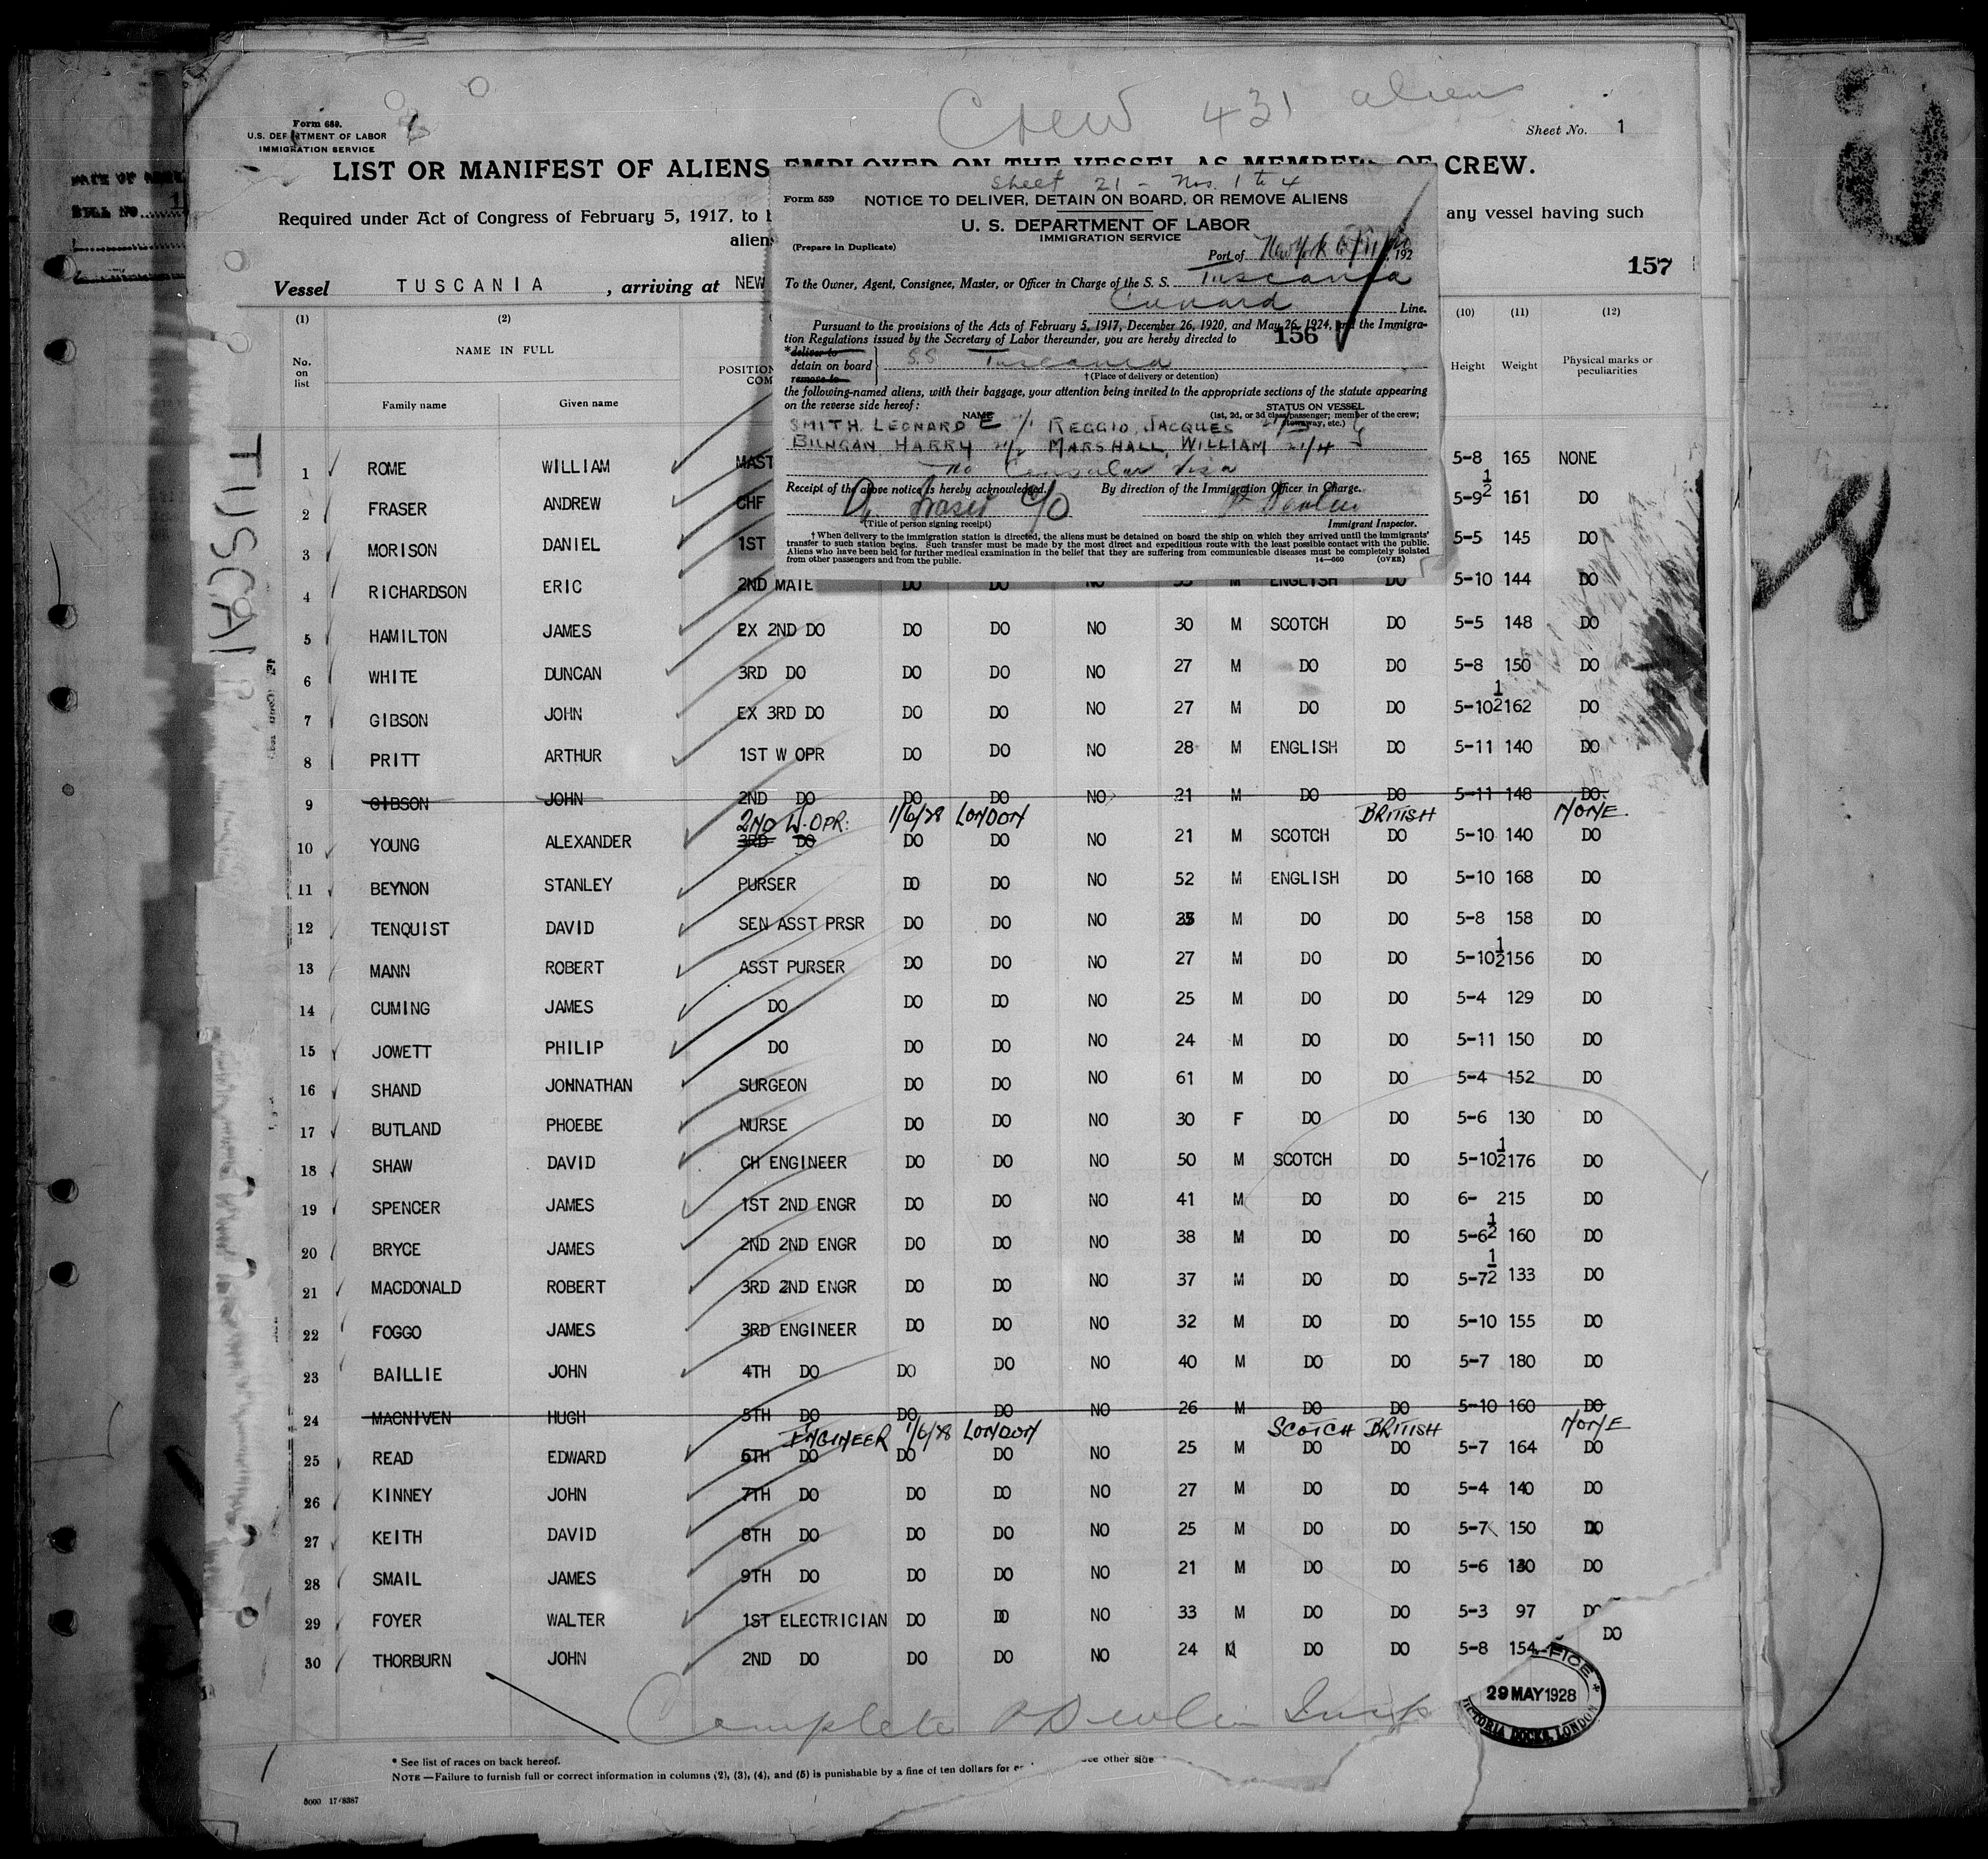 Crew 431 aliens
Form 689.
U.S. DEPARTMENT OF LABOR
IMMIGRATION SERVICE
Sheet No. 1
LIST OR MANIFEST OF ALIENS EMPLOYED ON THE VESSEL AS MEMBERS OF CREW.
Required under Act of Congress of February 5, 1917, to
any vessel having such
alien
157
Vessel TUSCANIA, arriving at NEW
Sheet 21 - Nos. 1 to 4
Form 559 NOTICE TO DELIVER, DETAIN ON BOARD, OR REMOVE ALIENS
U. S. DEPARTMENT OF LABOR
IMMIGRATION SERVICE
(Prepare in Duplicate)
Port of New York 192
To the Owner, Agent, Consignee, Master, or Officer in Charge of the S. S. Tuscania
Cunard Line.
Pursuant to the provisions of the Acts of February 5, 1917, December 26, 1920, and May 26, 1924, and the Immigra-
tion Regulations issued by the Secretary of Labor thereunder, you are hereby directed to 156
*deliver to
detain on board S.S Tuscania
remove to
†(Place of delivery or detention)
the following-named aliens, with their baggage, your attention being invited to the appropriate sections of the statute appearing
on the reverse side hereof:
NAME STATUS ON VESSEL
(1st, 2d, or 3d class passenger; member of the crew; stowaway, etc.)
SMITH LEONARD E 21/1 REGGIO, JACQUES 21/3
BUNGAN HARRY 21/2 MARSHALL, WILLIAM 21/4
No Consular Visa
Receipt of the above notice is hereby acknowledged. By direction of the Immigration Officer in Charge.
A. Fraser C/O
(Title of person signing receipt) Immigrant Inspector.
†When delivery to the immigration station is directed, the aliens must be detained on board the ship on which they arrived until the immigrants'
transfer to such station begins. Such transfer must be made by the most direct and expeditious route with the least possible contact with the public.
Aliens who have been held for further medical examination in the belief that they are suffering from communicable diseases must be completely isolated
from other passengers and from the public. 14—660 (OVER)
(1) (2) (10) (11) (12)
No. on list NAME IN FULL POSITION Height Weight Physical marks or peculiarities
Family name Given name
1 ROME WILLIAM MAST 5-8 165 NONE
2 FRASER ANDREW CHF 5-9½ 161 DO
3 MORISON DANIEL 1ST 5-5 145 DO
4 RICHARDSON ERIC 2ND MATE DO DO NO 33 M ENGLISH DO 5-10 144 DO
5 HAMILTON JAMES EX 2ND DO DO DO NO 30 M SCOTCH DO 5-5 148 DO
6 WHITE DUNCAN 3RD DO DO DO NO 27 M DO DO 5-8 150 DO
7 GIBSON JOHN EX 3RD DO DO DO NO 27 M DO DO 5-10½ 162 DO
8 PRITT ARTHUR 1ST W OPR DO DO NO 28 M ENGLISH DO 5-11 140 DO
9 GIBSON JOHN 2ND DO DO DO NO 21 M DO DO 5-11 148 DO
2ND W. OPR. 1/6/28 LONDON BRITISH NONE
10 YOUNG ALEXANDER 3RD DO DO DO NO 21 M SCOTCH DO 5-10 140 DO
11 BEYNON STANLEY PURSER DO DO NO 52 M ENGLISH DO 5-10 168 DO
12 TENQUIST DAVID SEN ASST PRSR DO DO NO M DO DO 5-8 158 DO
13 MANN ROBERT ASST PURSER DO DO NO 27 M DO DO 5-10½ 156 DO
14 CUMING JAMES DO DO DO NO 25 M DO DO 5-4 129 DO
15 JOWETT PHILIP DO DO DO NO 24 M DO DO 5-11 150 DO
16 SHAND JOHNATHAN SURGEON DO DO NO 61 M DO DO 5-4 152 DO
17 BUTLAND PHOEBE NURSE DO DO NO 30 F DO DO 5-6 130 DO
18 SHAW DAVID CH ENGINEER DO DO NO 50 M SCOTCH DO 5-10½ 176 DO
19 SPENCER JAMES 1ST 2ND ENGR DO DO NO 41 M DO DO 6- 215 DO
20 BRYCE JAMES 2ND 2ND ENGR DO DO NO 38 M DO DO 5-6½ 160 DO
21 MACDONALD ROBERT 3RD 2ND ENGR DO DO NO 37 M DO DO 5-7½ 133 DO
22 FOGGO JAMES 3RD ENGINEER DO DO NO 32 M DO DO 5-10 155 DO
23 BAILLIE JOHN 4TH DO DO DO NO 40 M DO DO 5-7 180 DO
24 MACNIVEN HUGH 5TH DO DO DO NO 26 M DO DO 5-10 160 DO
ENGINEER 1/6/28 LONDON SCOTCH BRITISH NONE
25 READ EDWARD 6TH DO DO DO NO 25 M DO DO 5-7 164 DO
26 KINNEY JOHN 7TH DO DO DO NO 27 M DO DO 5-4 140 DO
27 KEITH DAVID 8TH DO DO DO NO 25 M DO DO 5-7 150 DO
28 SMAIL JAMES 9TH DO DO DO NO 21 M DO DO 5-6 130 DO
29 FOYER WALTER 1ST ELECTRICIAN DO DO NO 33 M DO DO 5-3 97 DO
30 THORBURN JOHN 2ND DO DO DO NO 24 M DO DO 5-8 154 DO
Complete
29 MAY 1928
VICTORIA DOCKS, LONDON
* See list of races on back hereof. see other side
NOTE—Failure to furnish full or correct information in columns (2), (3), (4), and (5) is punishable by a fine of ten dollars for